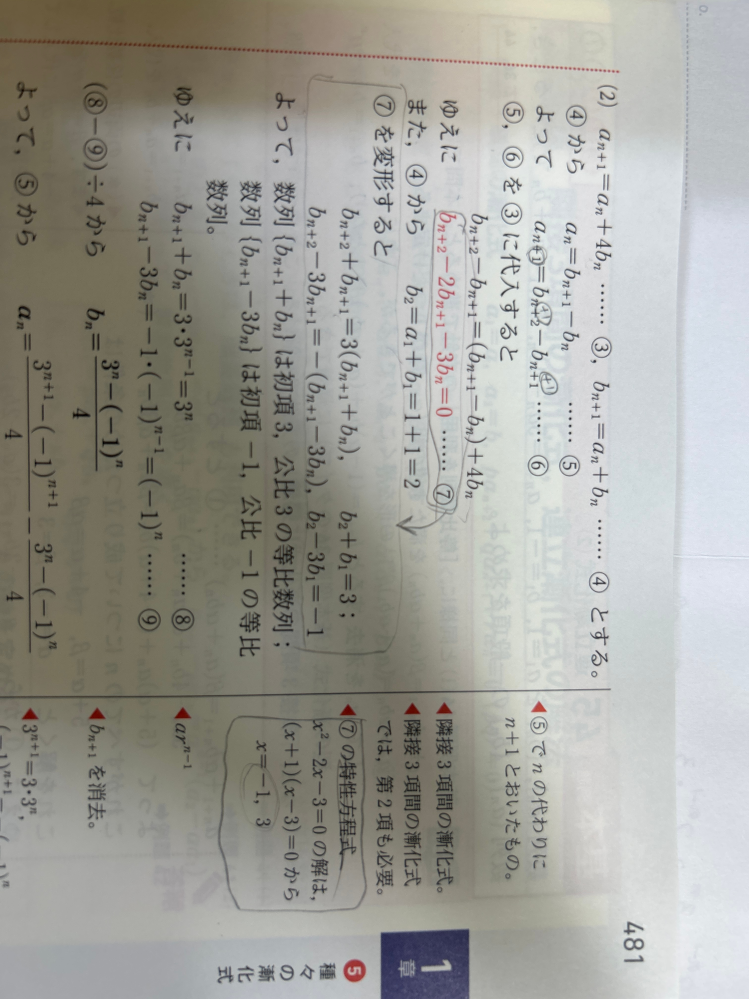 481
(2) aₙ₊₁=aₙ+4bₙ …… ③, bₙ₊₁=aₙ+bₙ …… ④ とする。
④から aₙ=bₙ₊₁−bₙ …… ⑤
よって aₙ₊₁=bₙ₊₂−bₙ₊₁ …… ⑥
⑤, ⑥を③に代入すると
bₙ₊₂−bₙ₊₁=(bₙ₊₁−bₙ)+4bₙ
ゆえに bₙ₊₂−2bₙ₊₁−3bₙ=0 …… ⑦
また, ④から b₂=a₁+b₁=1+1=2
⑦を変形すると
bₙ₊₂+bₙ₊₁=3(bₙ₊₁+bₙ), b₂+b₁=3 ;
bₙ₊₂−3bₙ₊₁=−(bₙ₊₁−3bₙ), b₂−3b₁=−1
よって, 数列{bₙ₊₁+bₙ}は初項3, 公比3の等比数列;
数列{bₙ₊₁−3bₙ}は初項−1, 公比−1の等比
数列。
ゆえに bₙ₊₁+bₙ=3・3ⁿ⁻¹=3ⁿ …… ⑧
bₙ₊₁−3bₙ=−1・(−1)ⁿ⁻¹=(−1)ⁿ …… ⑨
(⑧−⑨)÷4から bₙ=(3ⁿ−(−1)ⁿ)/4
よって, ⑤から aₙ=(3ⁿ⁺¹−(−1)ⁿ⁺¹)/4−(3ⁿ−(−1)ⁿ)/4
◀⑤でnの代わりに
n+1とおいたもの。
◀隣接3項間の漸化式。
◀隣接3項間の漸化式
では, 第2項も必要。
◀⑦の特性方程式
x²−2x−3=0の解は,
(x+1)(x−3)=0から
x=−1, 3
◀arⁿ⁻¹
◀bₙ₊₁を消去。
◀3ⁿ⁺¹=3・3ⁿ,
1
章
⑤
種々の漸化式